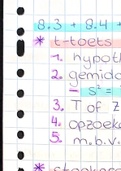 8.3 + 8.4 +
* t-toets
1. hypoth
2. gemidd
- s² =
3. T of Z
4. opzoeke
5. m.b.v.